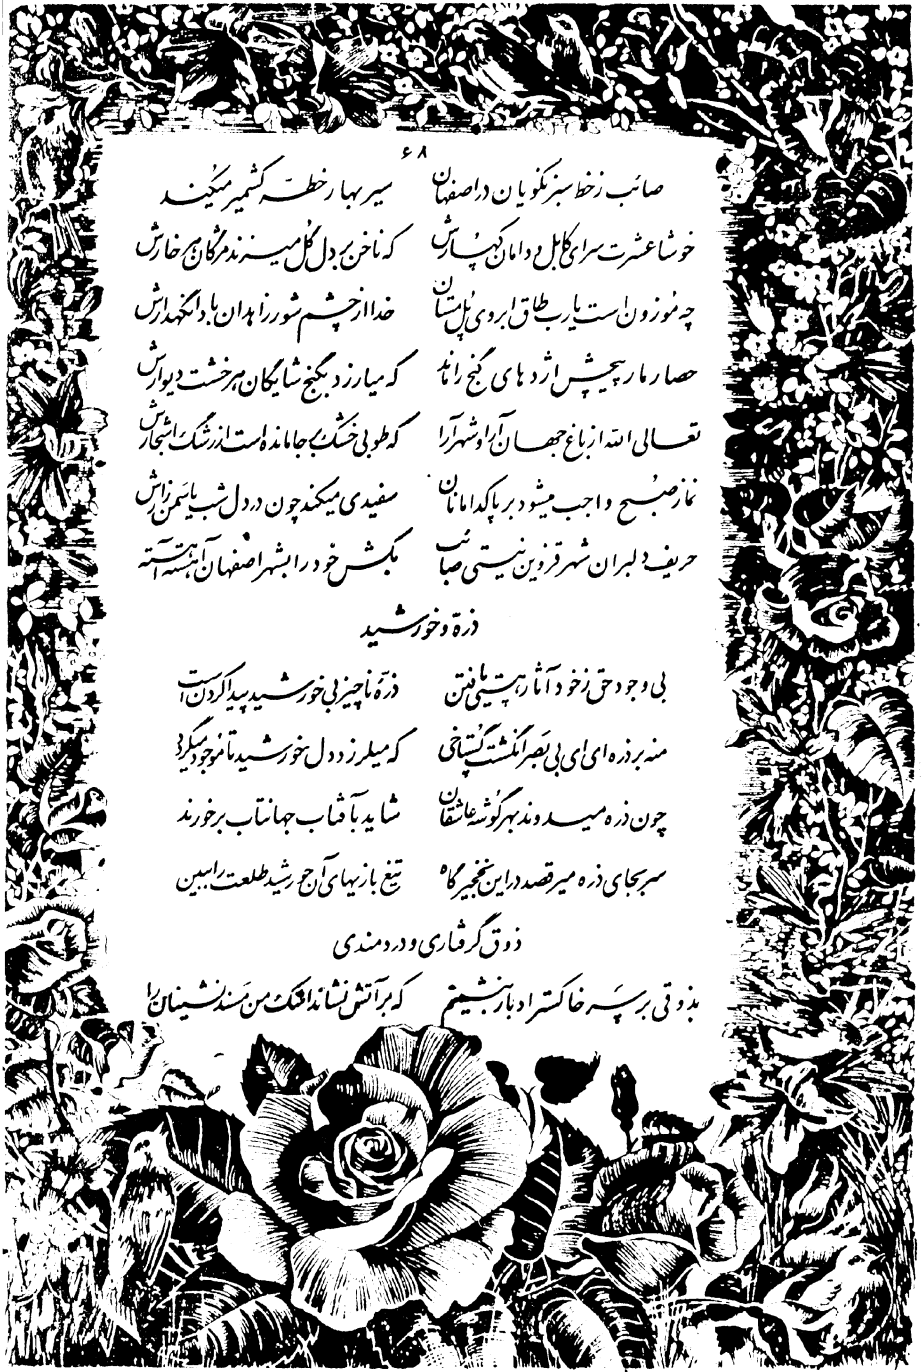 ۶۸
صائب زخط سبز نکویان در اصفهان سیر بهار خطهٔ کشمیر میکند
خوشا عشرت سرای کابل و دامان کهسارش که ناخن بر دل گل میزند مژگان هر خارش
چه موزون است یارب طاق ابروی پل مستان خدا از چشم شور زاهدان بادا نگهدارش
حصار مار پیچش اژدهای گنج را ماند که میارزد بگنج شایگان هر خشت دیوارش
تعالی الله از باغ جهان آرا و شهر آرا که طوبی خشک بر جا مانده است از رشک اشجارش
نماز صبح واجب میشود بر پاکدامانان سفیدی میکند چون در دل شب یاسمن زارش
حریف دلبران شهر قزوین نیستی صائب بکش خود را بشهر اصفهان آهسته آهسته
ذره و خورشید
بی وجود حق ز خود آثار هستی یافتن ذرّه ناچیز بی خورشید پیدا کردن است
منه بر ذره ای ای بی بصر انگشت گستاخی که میلرزد دل خورشید تا موجود میگردد
چون ذره میدوند بهر گوشه عاشقان شاید بآفتاب جهانتاب برخورند
سر بجای ذره میرقصد در این نخجیر گاه تیغ بازیهای آن خورشید طلعت را ببین
ذوق گرفتاری و دردمندی
بذوقی بر سر خاکستر ادبار بنشینم که بر آتش نشاند اشک من مسند نشینان را